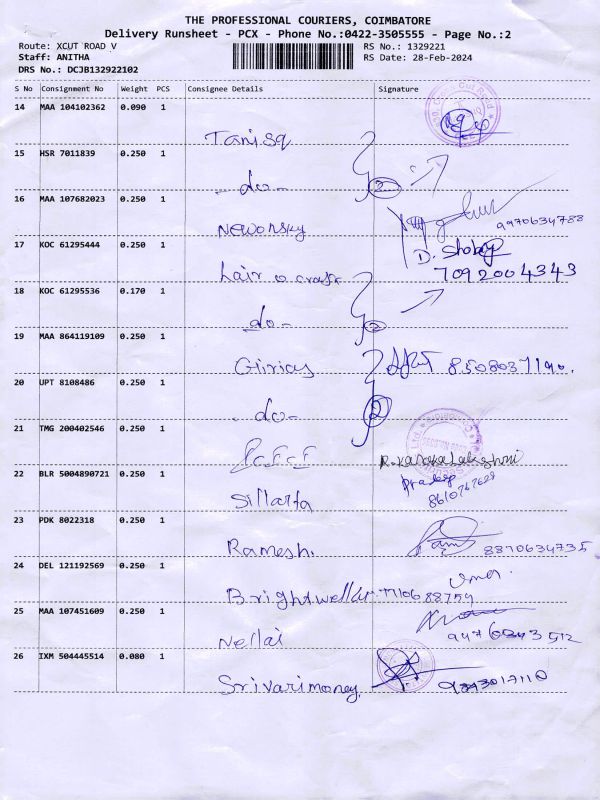 THE PROFESSIONAL COURIERS, COIMBATORE
Delivery Runsheet - PCX - Phone No.:0422-3505555 - Page No.:2
Route: XCUT ROAD V
RS No.: 1329221
Staff: ANITHA
RS Date: 28-Feb-2024
DRS No.: DCJB132922102
S No Consignment No Weight PCS Consignee Details Signature
14 MAA 104102362 0.090 1
Tanisq
15 HSR 7011839 0.250 1
-do-
2
16 MAA 107682023 0.250 1
Newonsky
9970634788
17 KOC 61295444 0.250 1
D. Shobay
hair o craft
7092004343
18 KOC 61295536 0.170 1
-do-
2
19 MAA 864119109 0.250 1
Girias
8508037190.
20 UPT 8108486 0.250 1
-do-
2
21 TMG 200402546 0.250 1
R. Kanakalakshmi
22 BLR 5004890721 0.250 1
Pradeep
23 PDK 8022318 0.250 1
Ramesh.
8870634735
24 DEL 121192569 0.250 1
Uma.
25 MAA 107451609 0.250 1
Nellai
26 IXM 504445514 0.080 1
Srivarimoney